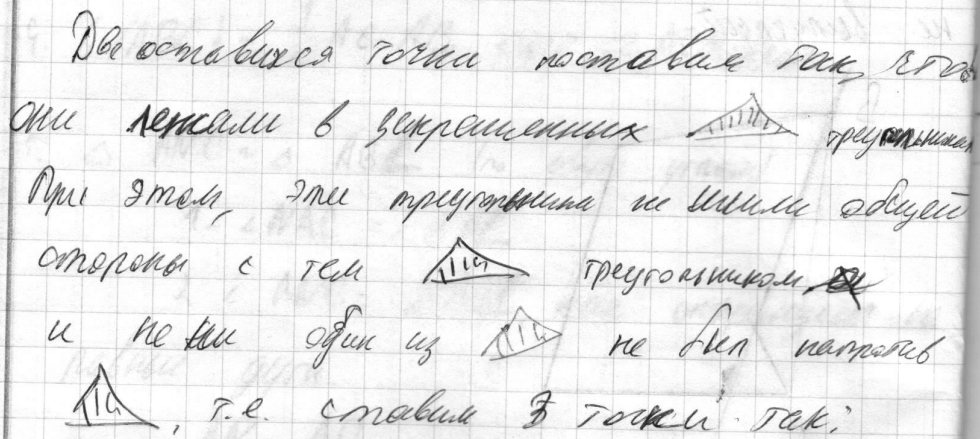 Две оставихся точки поставим так, что
они лежали в закрашенных треугольниках
При этом, эти треугольника не имели общей
стороны с тем треугольником
и не ни один из не был напротив
, т.е. ставим 3 точки так: